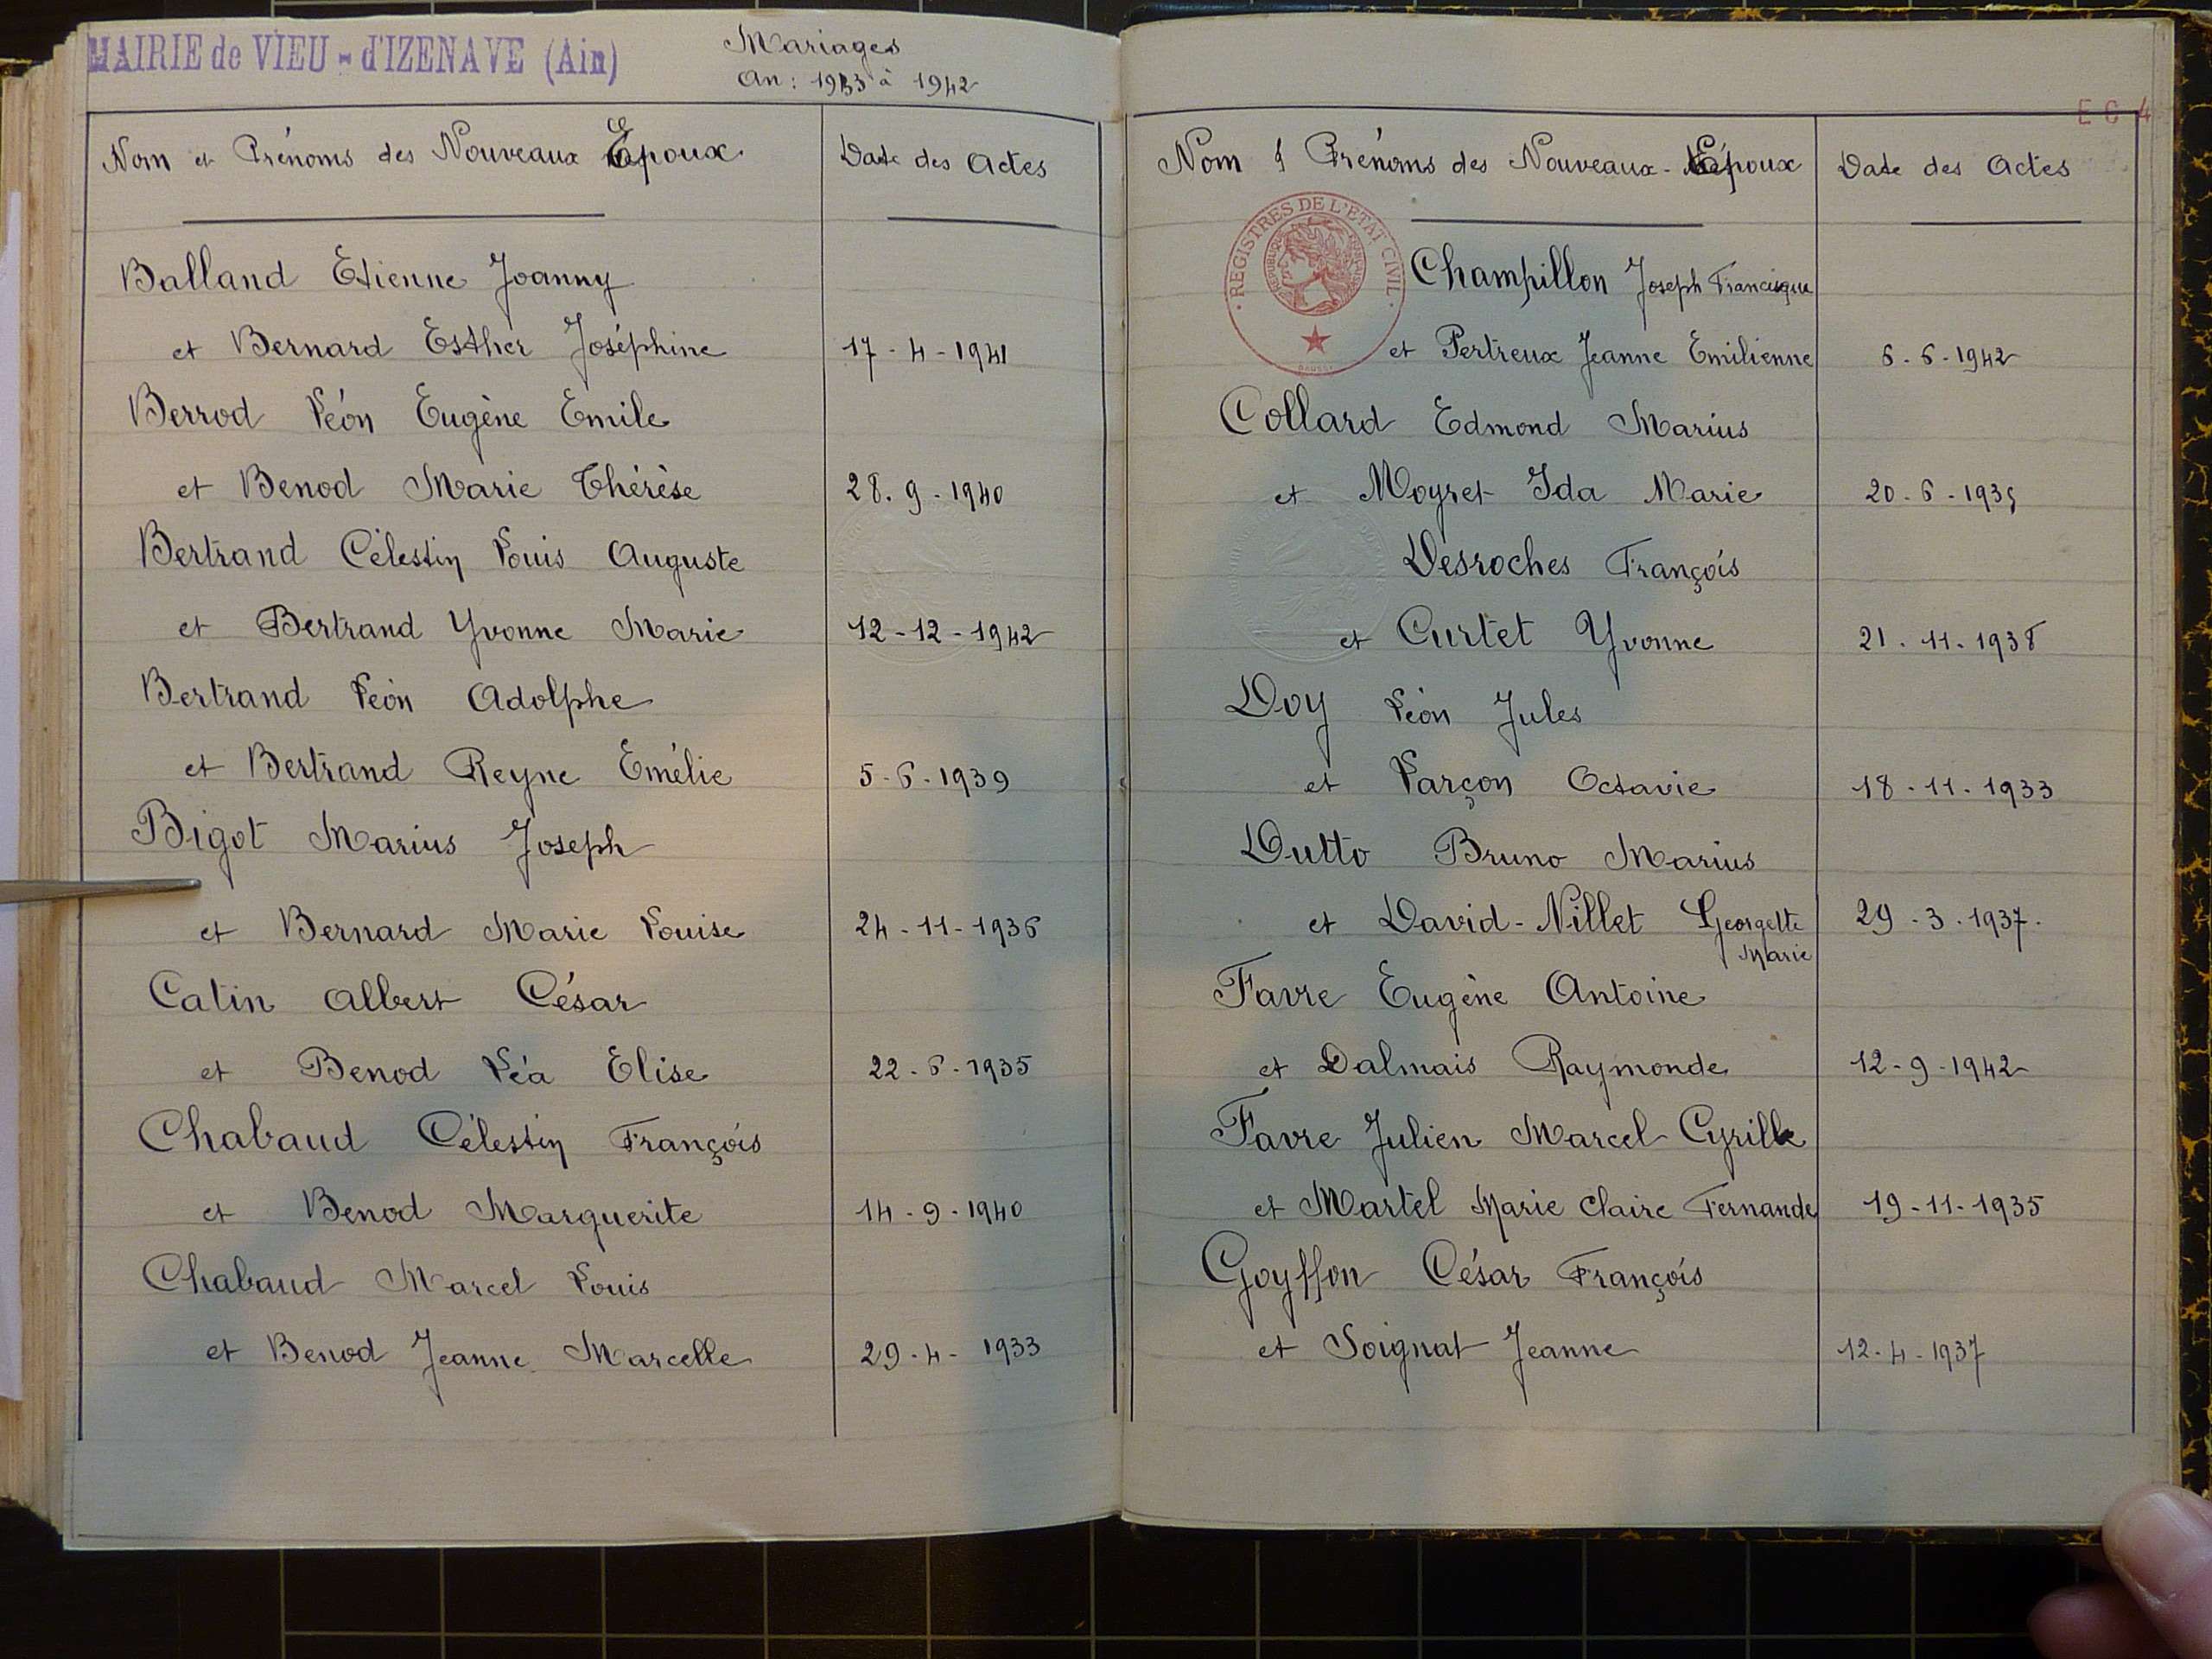 MAIRIE de VIEU - d'IZENAVE (Ain)
Mariages
An : 1933 à 1942
Nom et Prénoms des Nouveaux Epoux
Date des Actes
Balland Etienne Joanny
et Bernard Esther Joséphine 17-4-1941
Berrod Léon Eugène Emile
et Benod Marie Thérèse 28.9.1940
Bertrand Célestin Louis Auguste
et Bertrand Yvonne Marie 12-12-1942
Bertrand Léon Adolphe
et Bertrand Reyne Emélie 5-6-1939
Bigot Marius Joseph
et Bernard Marie Louise 24-11-1936
Catin Albert César
et Benod Léa Elise 22-6-1935
Chabaud Célestin François
et Benod Marguerite 14-9-1940
Chabaud Marcel Louis
et Benod Jeanne Marcelle 29-4-1933
E C 4
Nom & Prénoms des Nouveaux-Epoux
Date des Actes
REGISTRES DE L'ETAT CIVIL
Champillon Joseph Francisque
et Pertreux Jeanne Emilienne 6-6-1942
Collard Edmond Marius
et Moyret Ida Marie 20-6-1935
Desroches François
et Curtet Yvonne 21.11.1938
Doy Léon Jules
et Larçon Octavie 18-11-1933
Dutto Bruno Marius
et David-Nillet Georgette 29-3.1937.
Marie
Favre Eugène Antoine
et Dalmais Raymonde 12-9-1942
Favre Julien Marcel Cyrille
et Martel Marie Claire Fernande 19-11-1935
Goyffon César François
et Soignat Jeanne 12-4-1937